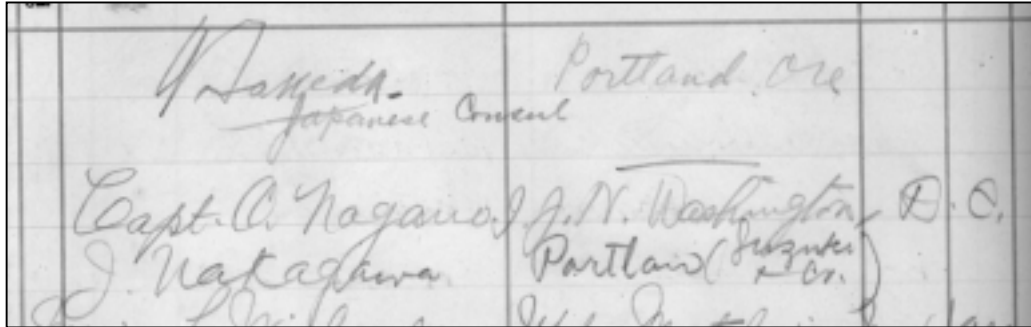 Portland. Ore
Japanese Consul
Capt. O. Nagano I.J.N. Washington, D.C.
J. Nakagawa Portland (Suzuki & Co.)